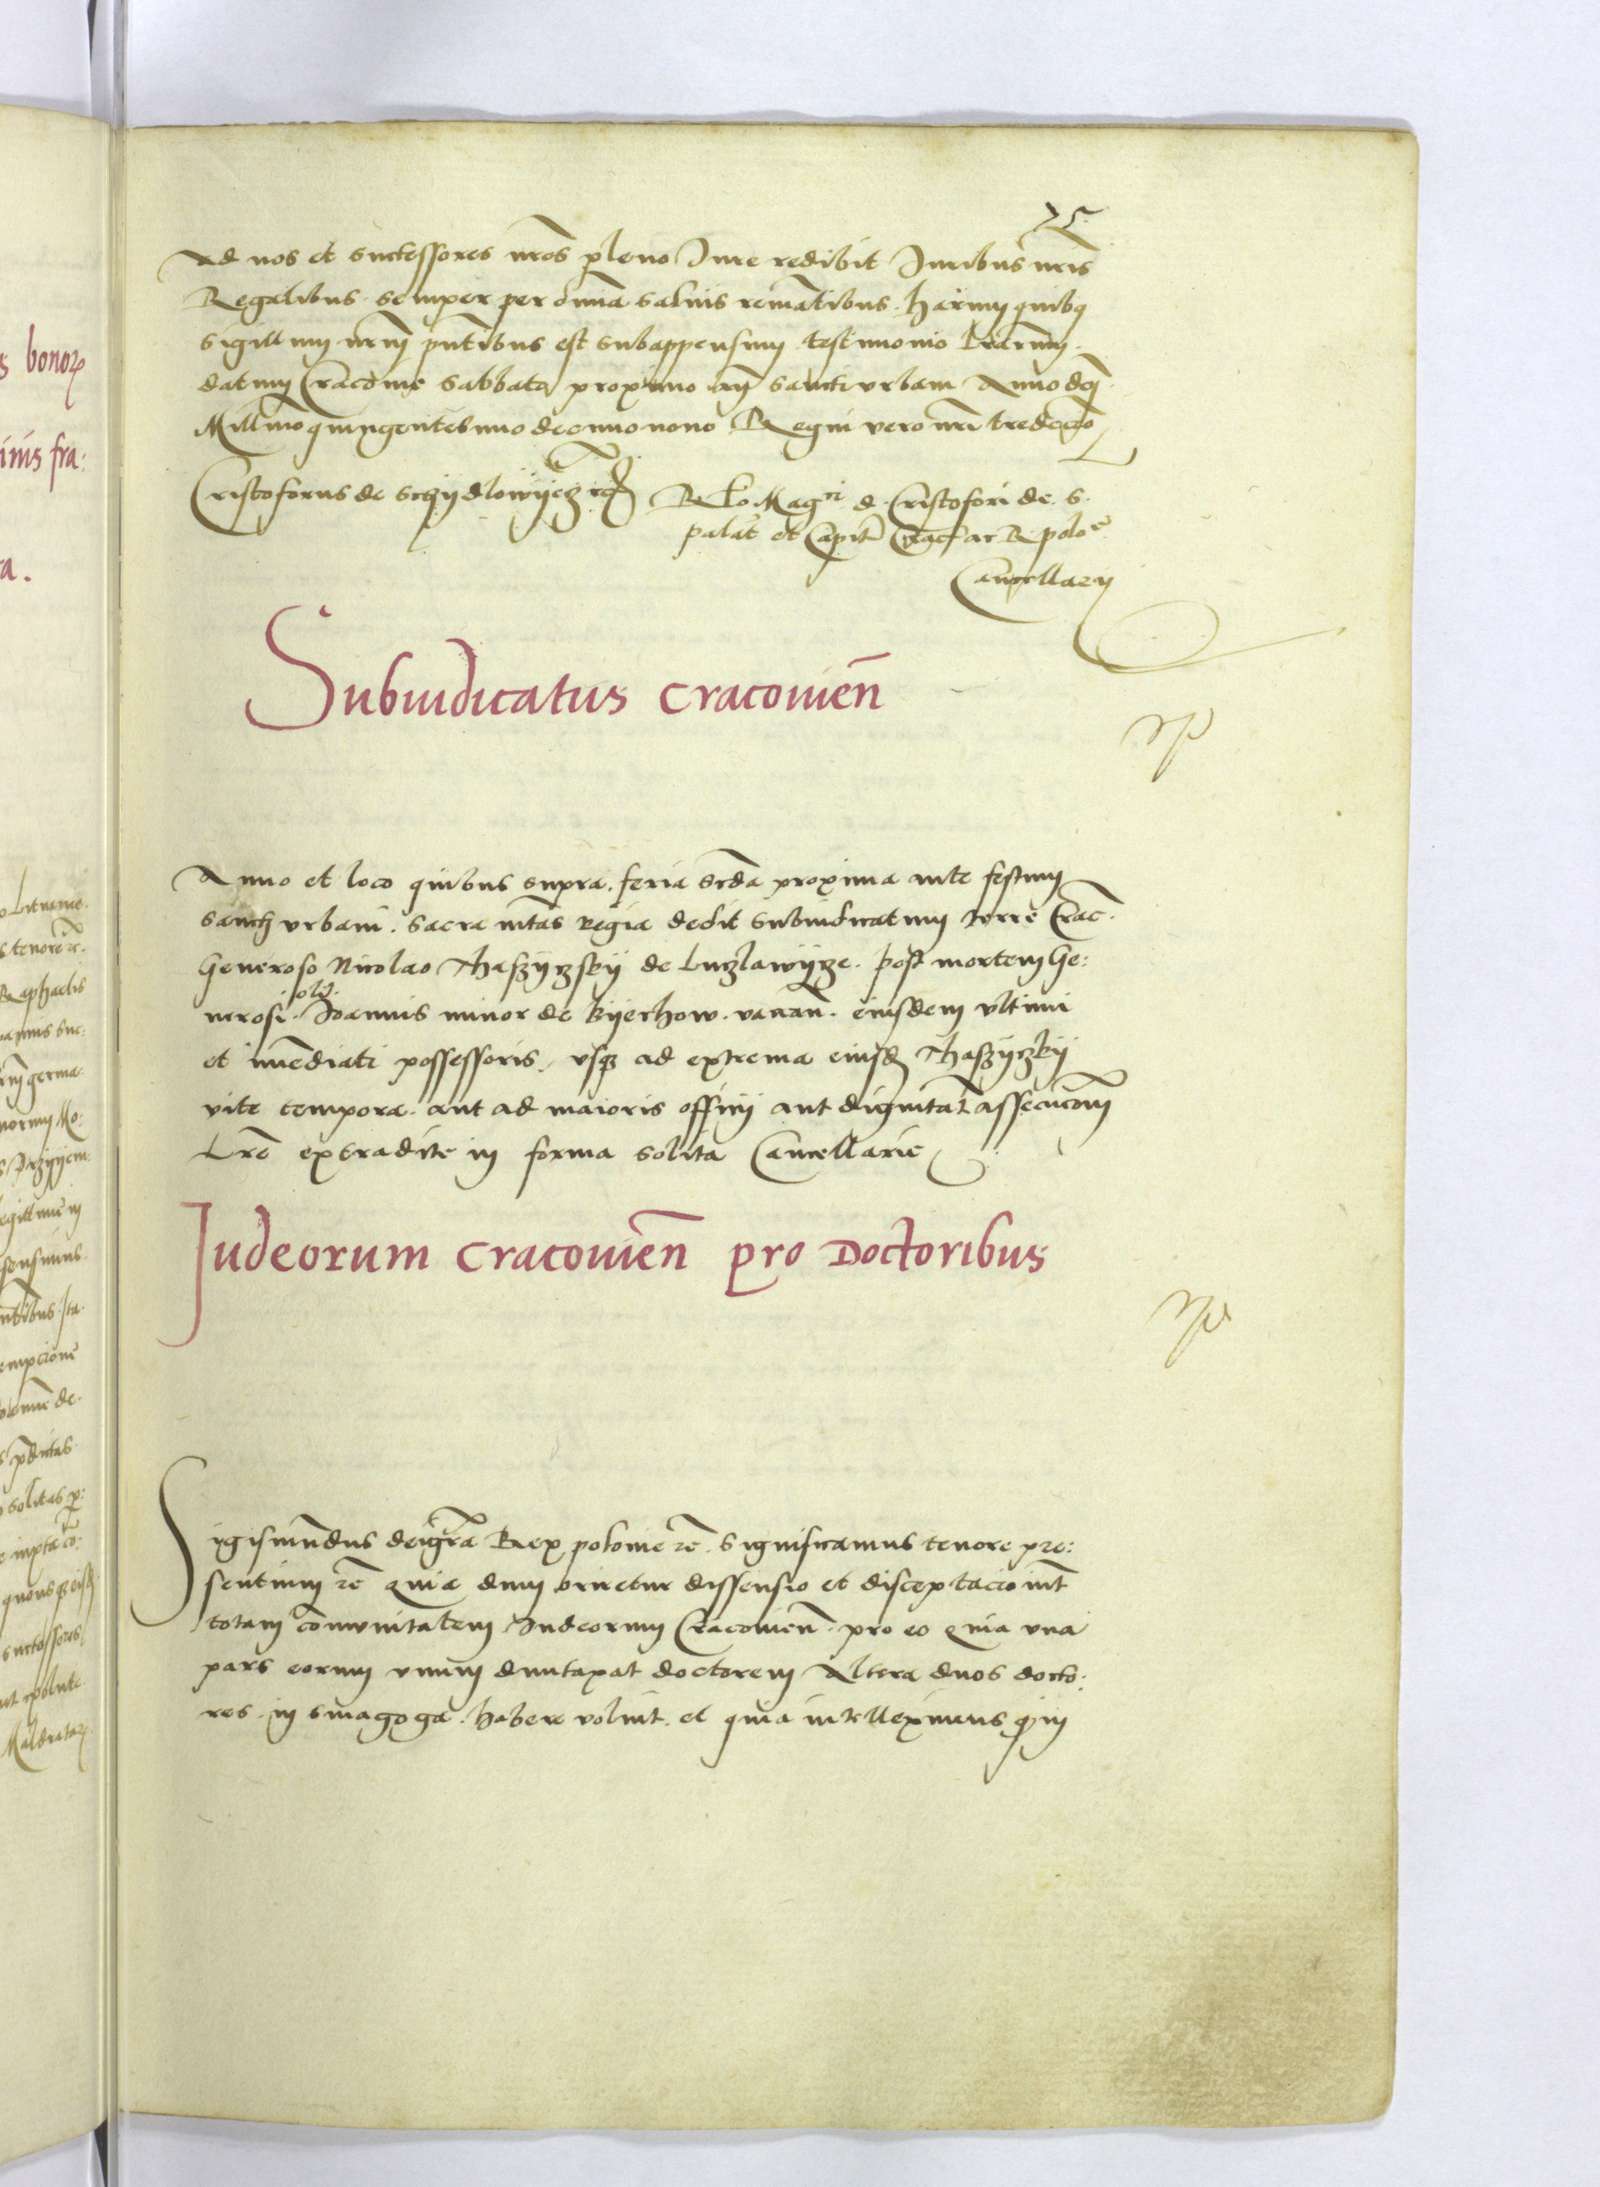 75
Ad nos et successores nr̃os pleno Jure redibit Juribus nr̃is
Regalibus semper per om̃ia salvis remañtibus. harum quibus
sigillum nr̃m pñtibus est subappensum testimonio lr̃arum.
datum Cracovie Sabbato proximo añ sancti urbani Anno dñi
Mill̃mo quingentesimo decimo nono Regni vero nr̃i tredecimo
Cristoforus de schydlowyecz
Rel̃o Magci d. Cristofori de. S.
palat̃ et Capit̃ Crac̃ ac R polo͂e
Cancellarij
Subiudicatus Cracovieñ
Anno et loco quibus supra. feria scd̃a proxima ante festum
sancti urbani. Sacra mtãs Regia dedit subiudicatum terre Crac̃.
Generoso Nicolao Thaszyczsky de Luczlawycze. post mortem Ge:
nerosi olĩ Joannis minor de Kyerhow. vacañ. eiusdem ultimi
et im̃ediati possessoris. usq̃ ad extrema eiusd̃ Thaszyczky
vite tempora. aut ad maioris officij aut dignitatis assecucion̄
Lrẽ extradite in forma solita Cancellarie
Judeorum Cracovien̄ pro Doctoribus
Sigismũndus dei gr̃a Rex polonie rc̃. Significamus tenore pre:
sentium rc̃ Quia dum oriretur dissensio et disceptacio int̃
totam com̃unitatem Judeorum Cracovieñ. pro eo quia una
pars eorum unum dumtaxat doctorem Altera duos docto:
res in sinagoga. habere voluit. et quia intelleximus qm̃